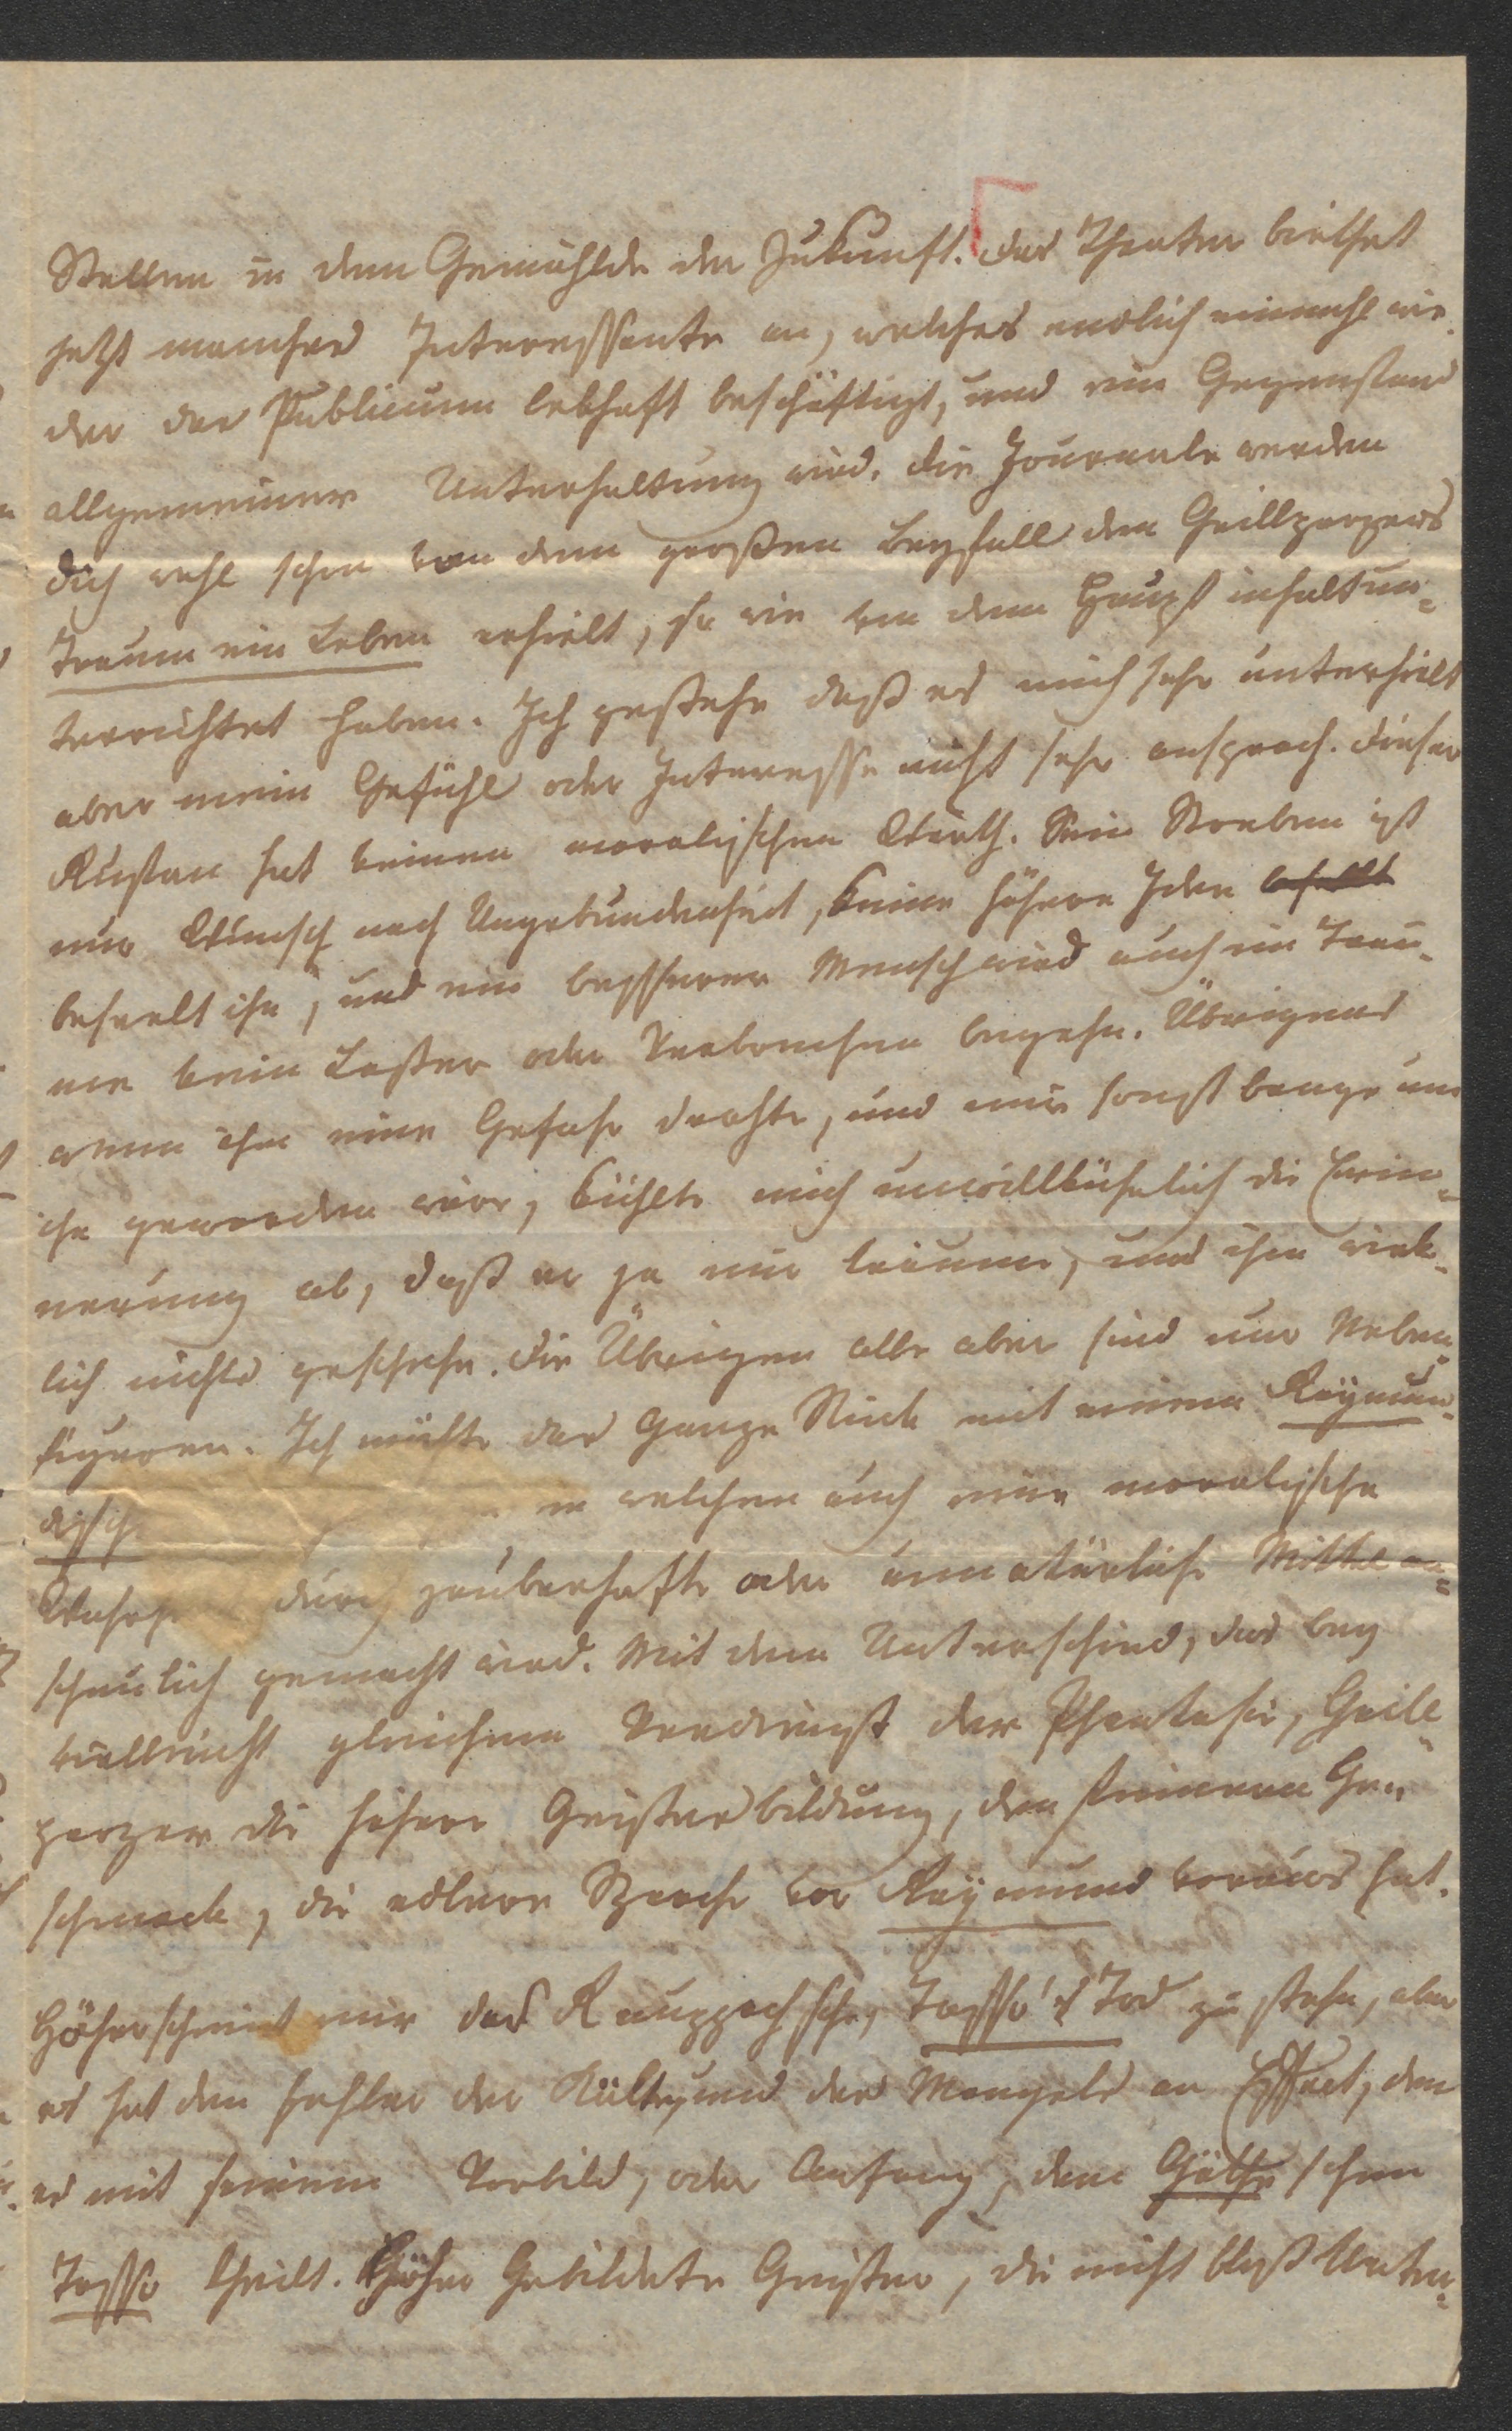 Stellen in dem Gemählde der Zukunft. Das Theater biethet
jetzt manches Interessante an, welches endlich einmahl wie-
der das Publicum lebhaft beschäftigt, und ein Gegenstand
allgemeiner Unterhaltung wird. Die Journale werden
dich wohl schon von dem großen Beyfall den Grillparzers
Traum ein Leben erhielt, so wie von dem Haupt inhalt un-
terrichtet haben. Ich gestehe daß es mich sehr unterhielt
aber mein Gefühl oder Interesse nicht sehr ansprach. Dieser
Rustan hat keinen moralischen Werth. Sein Streben ist
nur Wunsch nach Ungebundenheit, keine höhere Idee
beseelt ihn, und ein besserer Mensch wird auch im Trau-
me kein Laster oder Verbrechen begehn. Übrigens
wenn ihm eine Gefahr drohte, und mir sonst bange um
ihn geworden wär, kühlte mich unwillkührlich die Erin-
nerung ab, daß er ja nur träume, und ihm wirk-
lich nichts geschehe. Die Übrigen alle aber sind nur Neben
figuren. Ich möchte das Ganze Stück mit einem Raymun-
disch
in welchen auch eine moralische
Wahrh durch zauberhafte oder unnatürliche Mittel an-
schaulich gemacht wird. Mit dem Unterschied, das bey
vielleicht gleichem Verdienst der Phantasie, Grill
parzer die höhere Geistesbildung, den feineren Ge-
schmack, die edlere Sprache vor Raymund voraus hat.
Höher scheint mir das Rauppachsche, Tasso's Tod zu stehn, aber
es hat den Fehler der Kälte, und des Mangels an Effect, den
es mit seinem Vorbild, oder Anfang, dem Göthe schen
Tasso theilt. Höher Gebildete Geister, die nicht bloß Unter-